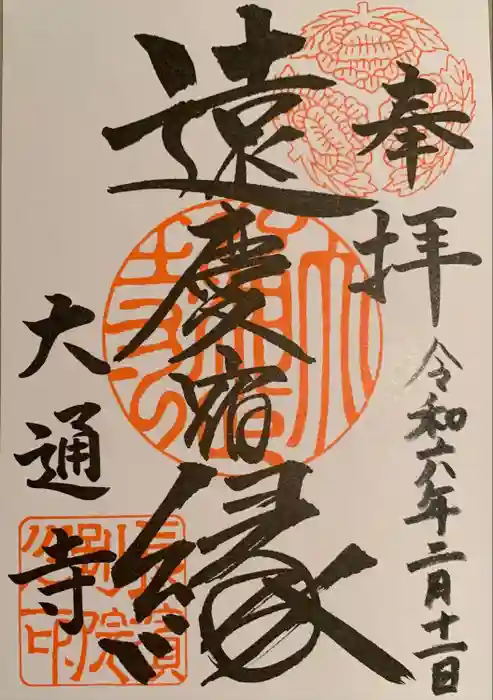 奉拝
令和六年二月十一日
遠慶宿縁
大通寺
長濱別院